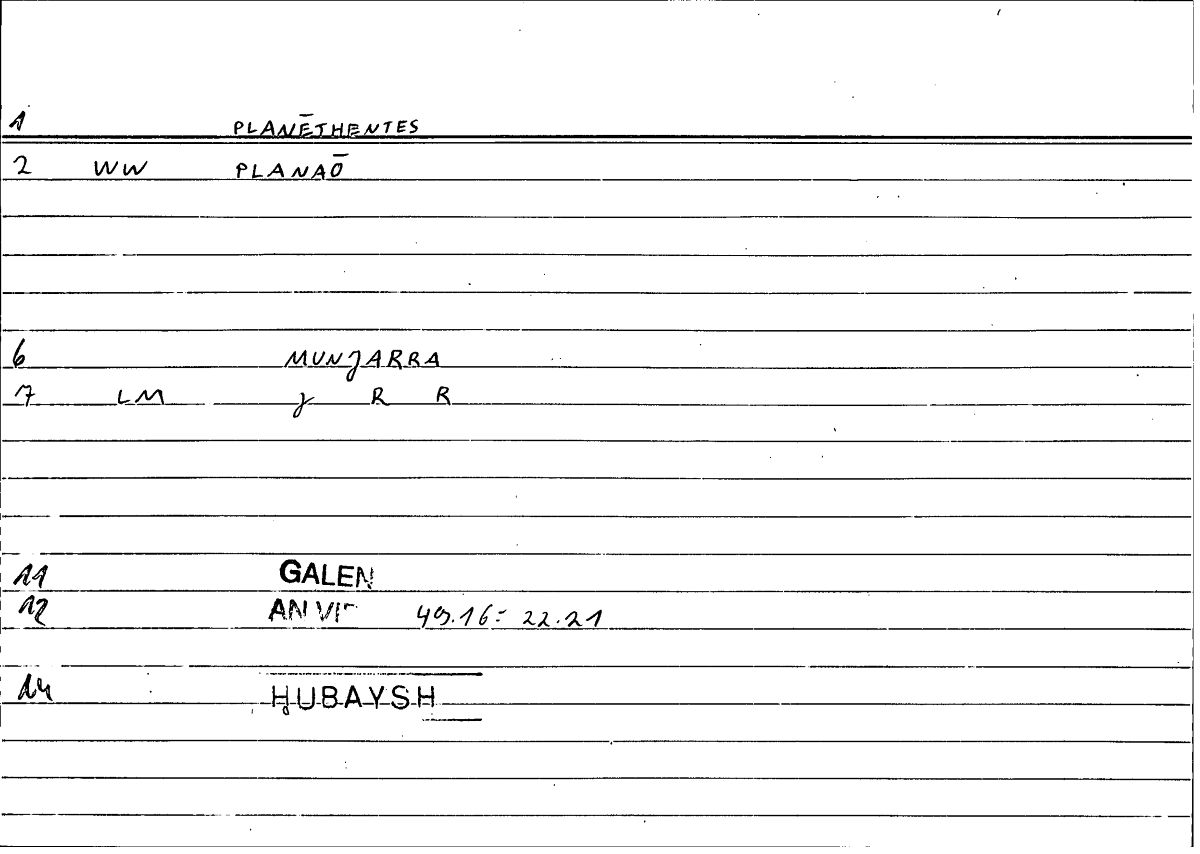 1 PLANĒTHENTES
2 WW PLANAŌ
6 MUNJARRA
7 LM J R R
11 GALEN
12 AN VII 49.16 = 22.21
14 ḤUBAYSH